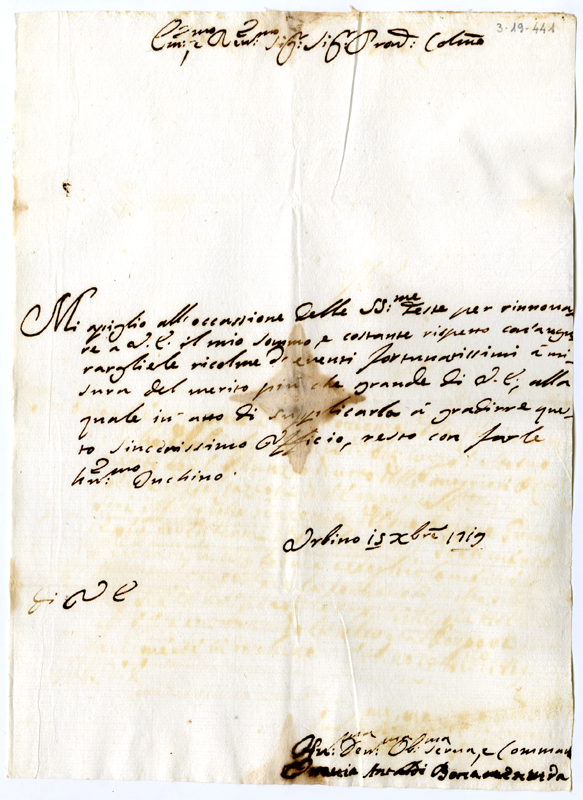 3-19-441
Em:mo e Reu:mo Sig:r Sig:r Prōn: Colmo
Mi apiglio all'occassione delle SS:me Feste per rinnoua-
re à V.E. il mio sommo, e costante rispetto con l'augu-
rargliele ricolme d'euenti fortunatissimi à mi-
sura del merito più che grande di V.E., alla
quale in atto di supplicarla à gradirre que-
to sincerissimo Officio, resto con farle
hu:mo Inchino
Urbino 15 Xbrē 1719
di V E
Hu:ma Deu:ma Ob:ma Serua, e Comman
Antaldi Bonauentura